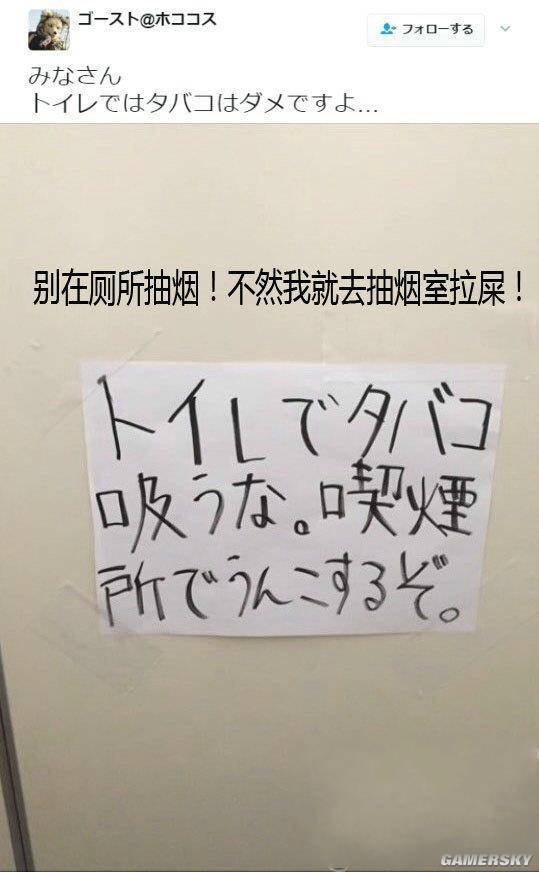 ゴースト@ホココス
フォローする
みなさん
トイレではタバコはダメですよ...
别在厕所抽烟！不然我就去抽烟室拉屎！
トイレでタバコ
吸うな。喫煙
所でうんこするぞ。
GAMERSKY